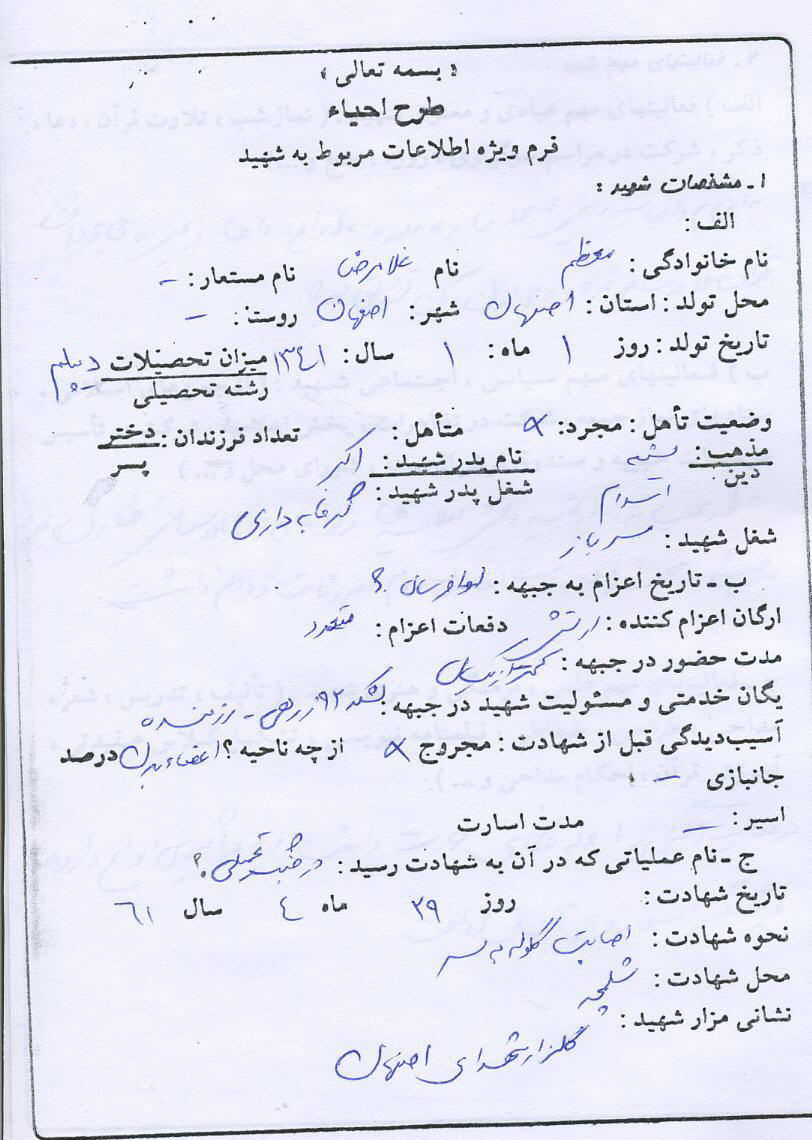 « بسمه تعالی »
طرح احیاء
فرم ویژه اطلاعات مربوط به شهید
۱ـ مشخصات شهید :
الف :
نام خانوادگی : معظم نام غلامرضا نام مستعار : -
محل تولد : استان : اصفهان شهر : اصفهان روستا : -
تاریخ تولد : روز ۱ ماه : ۱ سال : ۱۳۴۱ میزان تحصیلات دیپلم
رشته تحصیلی
وضعیت تأهل : مجرد : × متأهل : تعداد فرزندان : دختر
پسر
مذهب : شیعه نام پدر شهید : اکبر
دین اسلام شغل پدر شهید : گرمابه داری
شغل شهید : سرباز
ب ـ تاریخ اعزام به جبهه : اواخر سال ؟
ارگان اعزام کننده : ارتش دفعات اعزام : متعدد
مدت حضور در جبهه : کمتر از یکسال
یگان خدمتی و مسئولیت شهید در جبهه : لشکر ۹۲ زرهی - رزمنده
آسیب‌دیدگی قبل از شهادت : مجروح × از چه ناحیه ؟ اعضاء بدن درصد
جانبازی -
اسیر : - مدت اسارت
ج ـ نام عملیاتی که در آن به شهادت رسید : در جنگ تحمیلی ؟
تاریخ شهادت : روز ۲۹ ماه ٤ سال ٦١
نحوه شهادت : اصابت گلوله به سر
محل شهادت : شلمچه
نشانی مزار شهید :
گلزار شهدای اصفهان